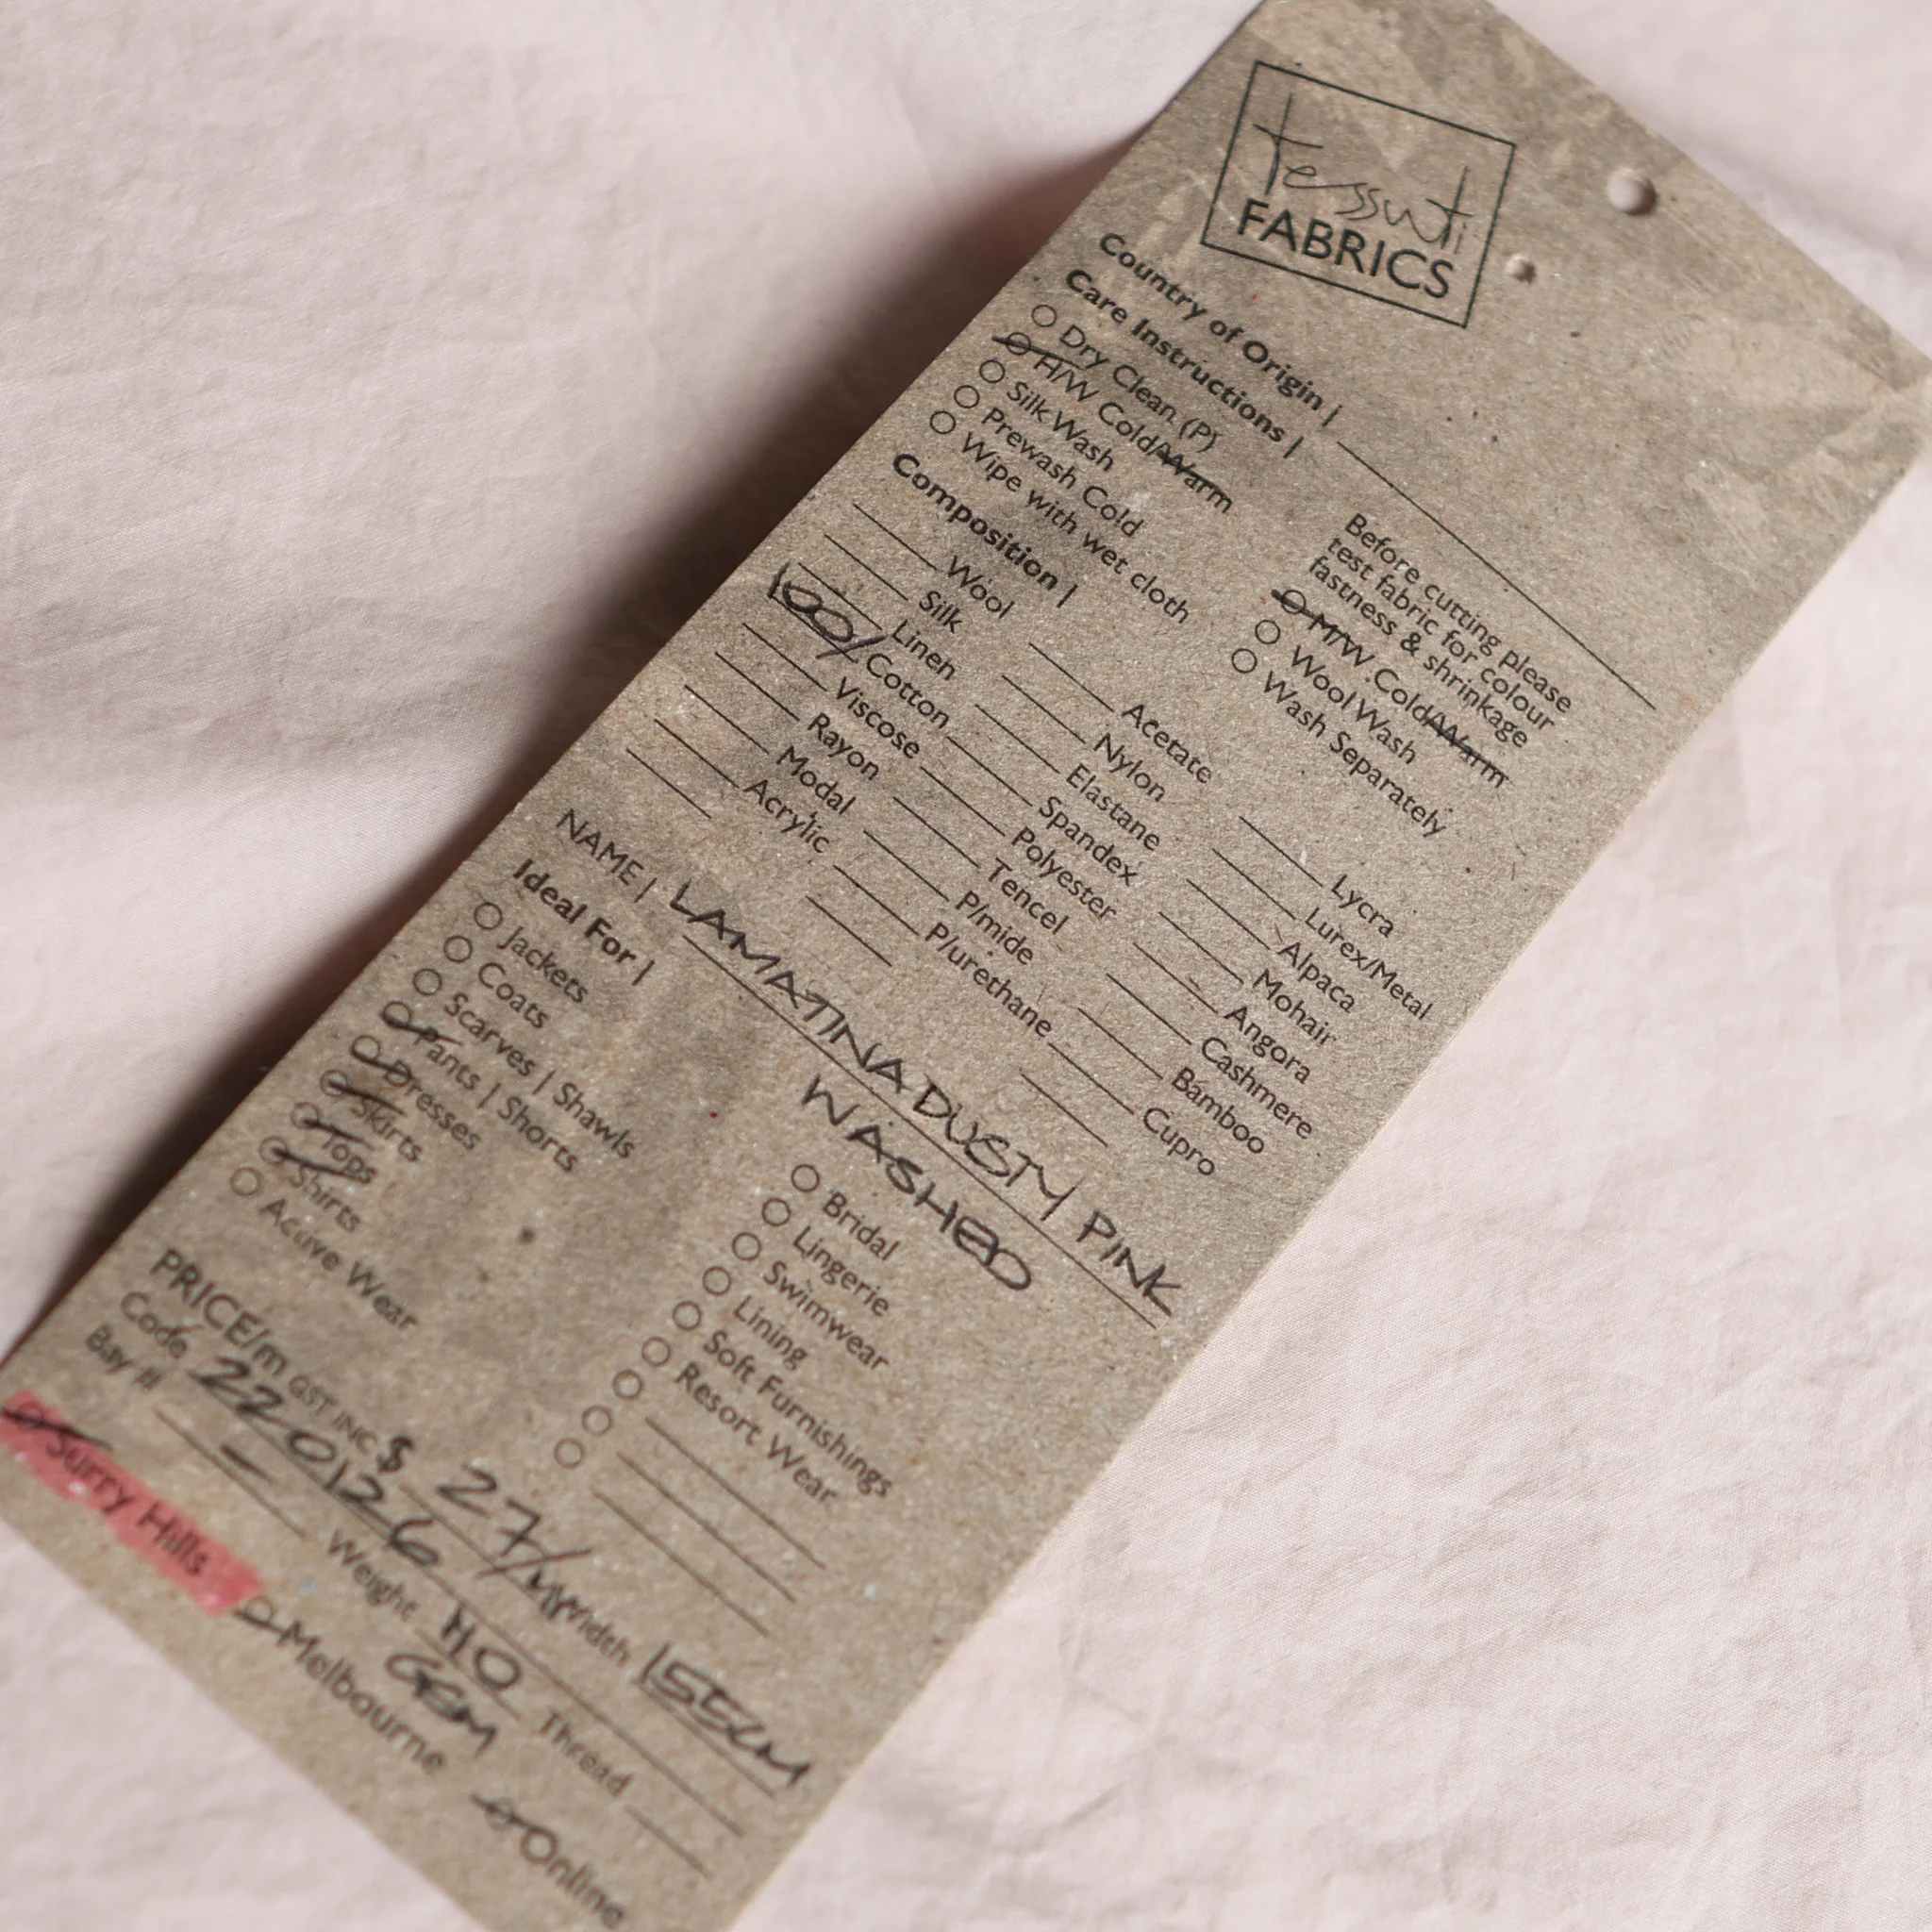 tessuti
FABRICS
Country of Origin |
Care Instructions |
Before cutting please
test fabric for colour
fastness & shrinkage
Dry Clean (P)
H/W Cold/Warm
Silk Wash
Prewash Cold
Wipe with wet cloth
M/W Cold/Warm
Wool Wash
Wash Separately
Composition |
Wool
Silk
Linen
100/ Cotton
Viscose
Rayon
Modal
Acrylic
Acetate
Nylon
Elastane
Spandex
Polyester
Tencel
P/mide
P/urethane
Lycra
Lurex/Metal
Alpaca
Mohair
Angora
Cashmere
Bamboo
Cupro
NAME | LAMATINA DUSTY PINK
WASHED
Ideal For |
Jackets
Coats
Scarves | Shawls
Pants | Shorts
Dresses
Skirts
Tops
Shirts
Active Wear
Bridal
Lingerie
Swimwear
Lining
Soft Furnishings
Resort Wear
PRICE/m GST INC $ 27/M Width 155CM
Code 220126 Weight 110 GSM Thread
Bay # –
Surry Hills Melbourne Online